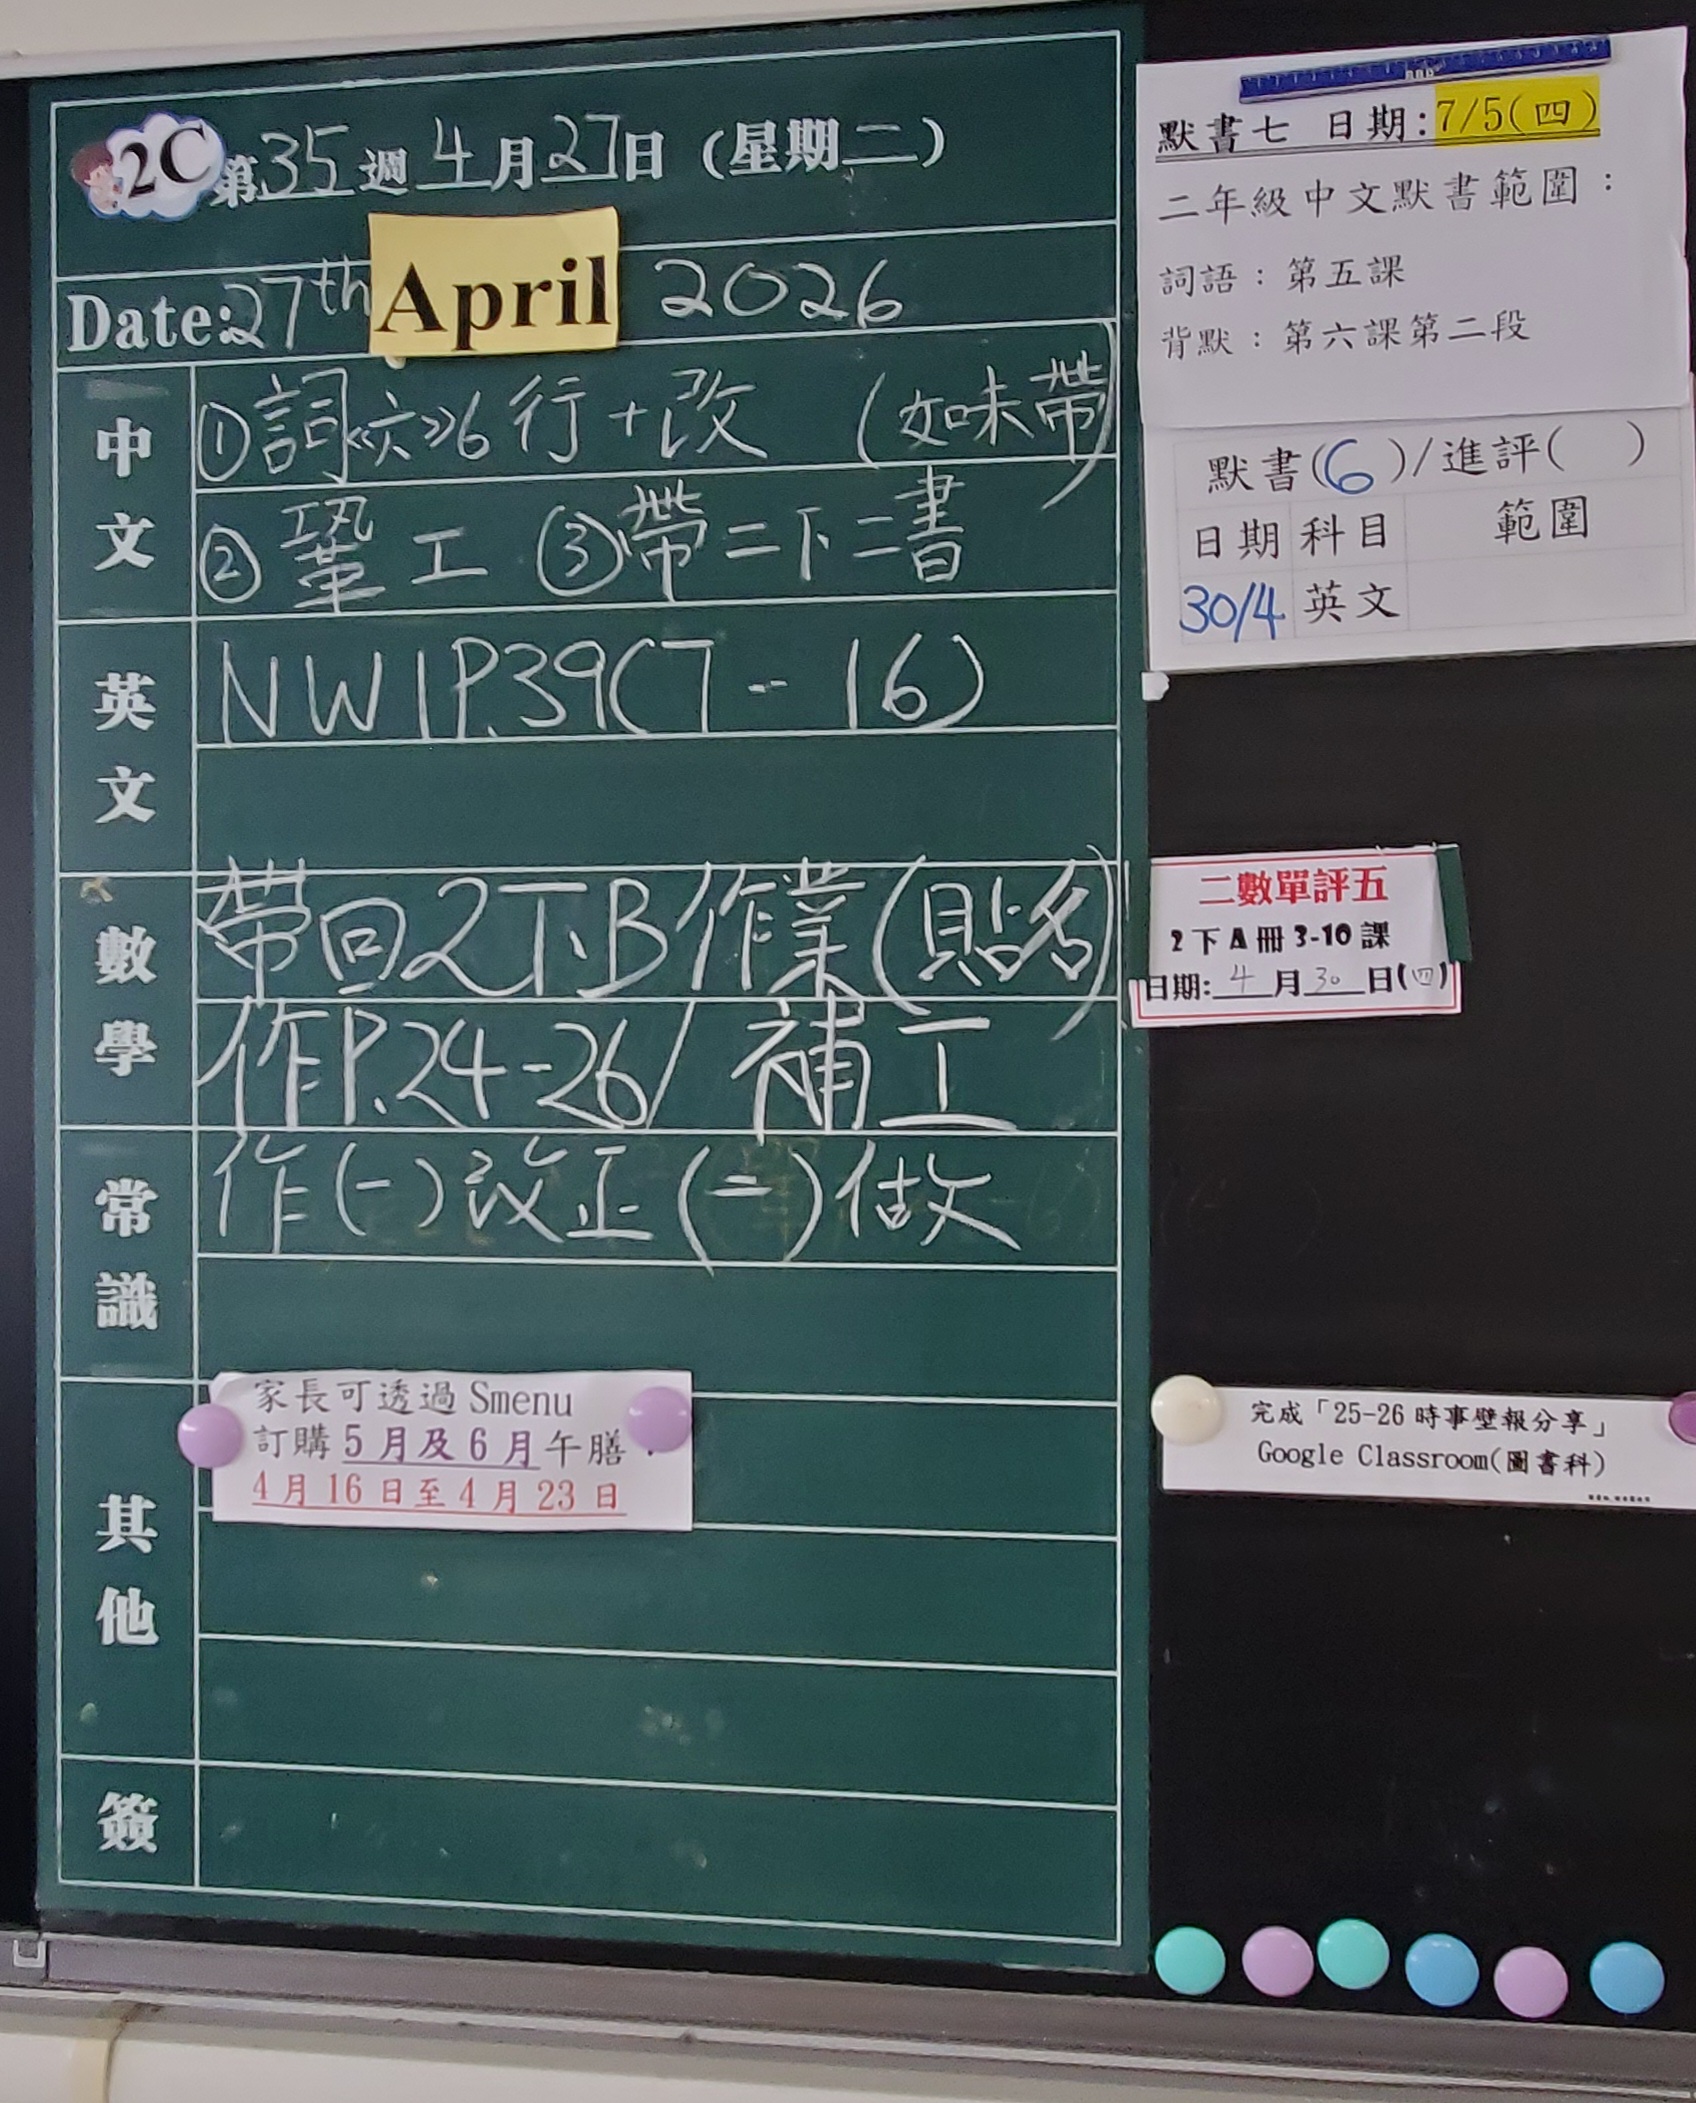 2C 第35週 4月27日(星期二)
Date: 27th April 2026
中文
①詞《六》6行+改 (如未帶)
②鞏工 ③帶二下二書
英文
NW1P.39(7-16)
數學
帶回2下B作業(貼名)
作P.24-26/補工
常識
作(一)改正(二)做
其他
家長可透過 Smenu
訂購 5月及6月午膳.
4月16日至4月23日
簽
默書七 日期:7/5(四)
二年級中文默書範圍:
詞語:第五課
背默:第六課第二段
默書(6)/進評( )
日期 科目 範圍
30/4 英文
二數單評五
2下A冊3-10課
日期:4月30日(四)
完成「25-26時事壁報分享」
Google Classroom(圖書科)